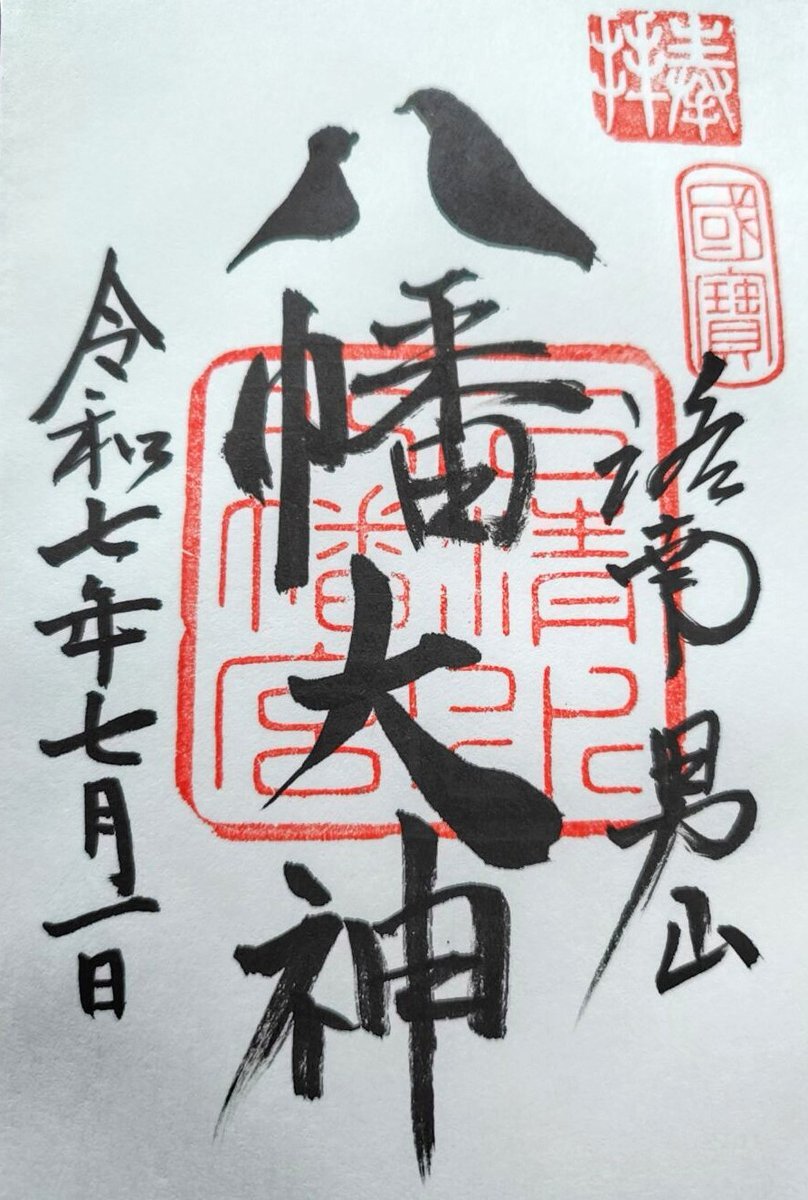 奉拝
國寶
洛南 男山
八幡大神
石清水八幡宮
令和七年七月一日